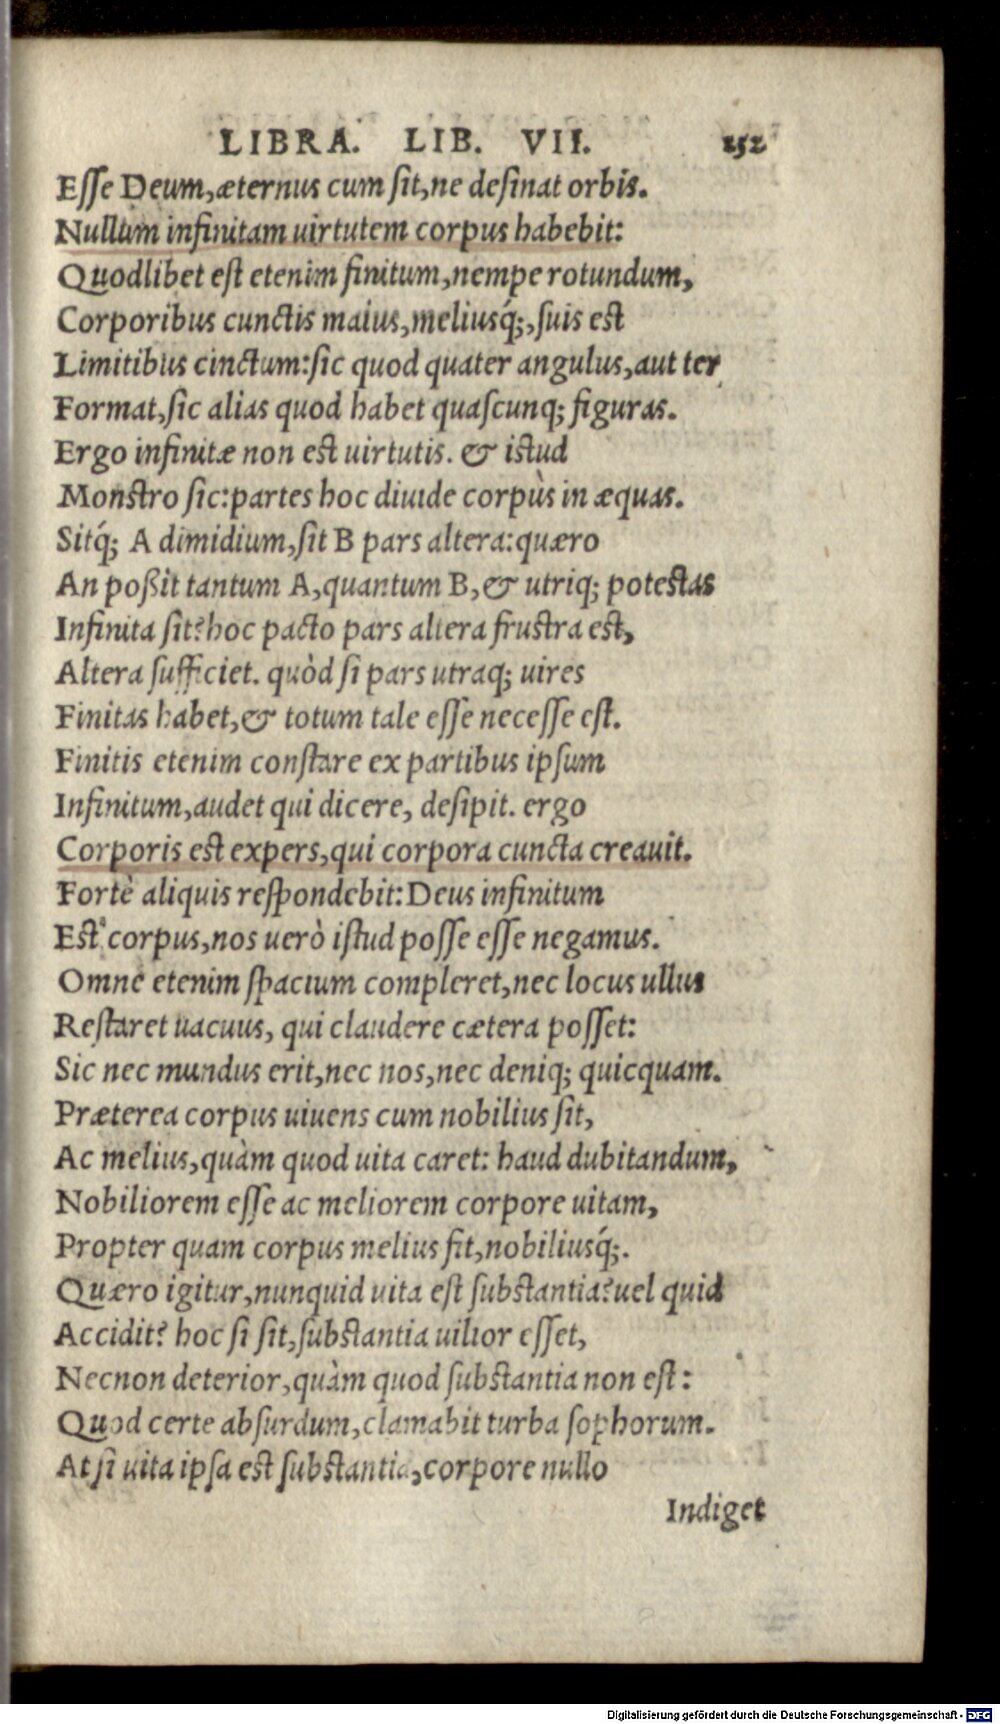 LIBRA. LIB. VII. 152
Eſſe Deum,æternus cum ſit,ne deſinat orbis.
Nullum infinitam uirtutem corpus habebit:
Quodlibet eſt etenim finitum,nempe rotundum,
Corporibus cunctis maius,meliusq́;,ſuis eſt
Limitibus cinctum:ſic quod quater angulus,aut ter
Format,ſic alias quod habet quaſcunq; figuras.
Ergo infinitæ non eſt uirtutis. & iſtud
Monſtro ſic:partes hoc diuide corpùs in æquas.
Sitq́; A dimidium,ſit B pars altera:quæro
An poßit tantum A,quantum B,& utriq; poteſtas
Infinita ſit?hoc pacto pars altera fruſtra eſt,
Altera ſufficiet. quòd ſi pars utraq; uires
Finitas habet,& totum tale eſſe neceſſe eſt.
Finitis etenim conſtare ex partibus ipſum
Infinitum,audet qui dicere, deſipit. ergo
Corporis eſt expers,qui corpora cuncta creauit.
Fortè aliquis reſpondebit:Deus infinitum
Eſt corpus,nos uerò iſtud poſſe eſſe negamus.
Omne etenim ſpacium compleret,nec locus ullus
Reſtaret uacuus, qui claudere cætera poſſet:
Sic nec mundus erit,nec nos,nec deniq; quicquam.
Præterea corpus uiuens cum nobilius ſit,
Ac melius,quàm quod uita caret: haud dubitandum,
Nobiliorem eſſe ac meliorem corpore uitam,
Propter quam corpus melius fit,nobiliusq́;.
Quæro igitur,nunquid uita eſt ſubſtantia?uel quid
Accidit? hoc ſi ſit,ſubſtantia uilior eſſet,
Necnon deterior,quàm quod ſubſtantia non eſt:
Quod certe abſurdum,clamabit turba ſophorum.
At ſi uita ipſa eſt ſubſtantia,corpore nullo
Indiget
Digitalisierung gefördert durch die Deutsche Forschungsgemeinschaft - DFG